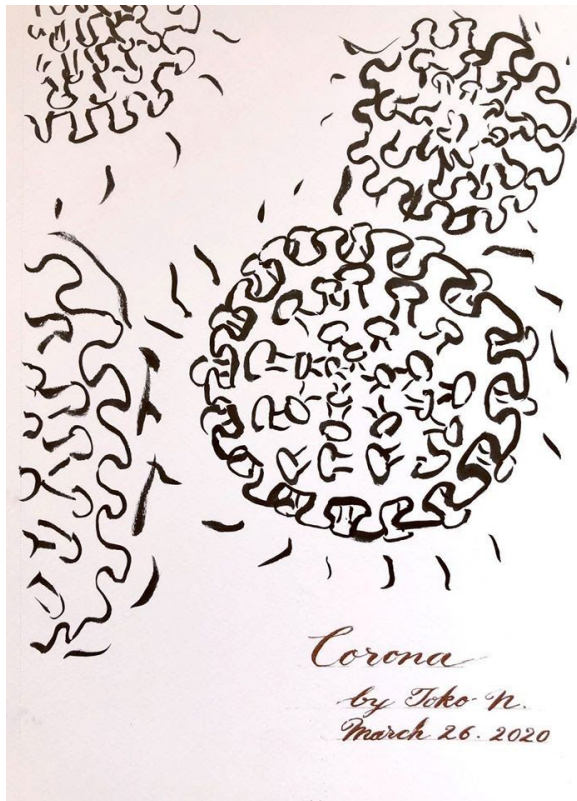 Corona
by Toko N.
March 26. 2020